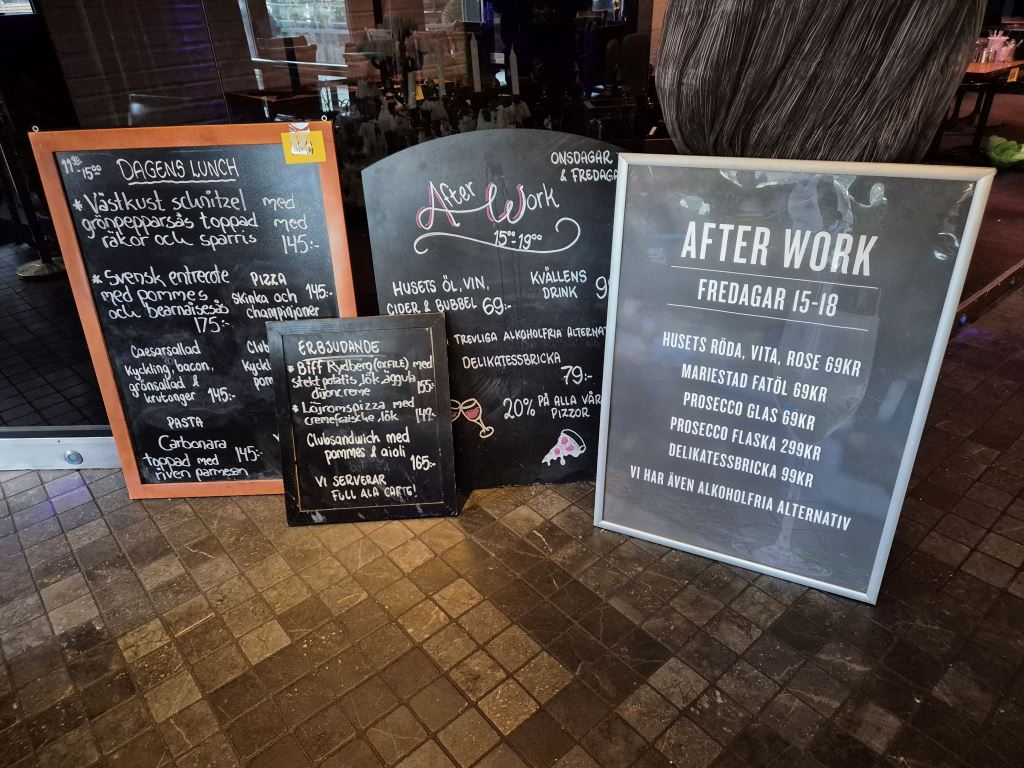 11:30-15:00
DAGENS LUNCH
* Västkust schnitzel med
grönpepparsås toppad med
räkor och sparris 145:-
* Svensk entrecote
med pommes
och bearnaisesås
175:-
PIZZA
Skinka och 145:-
champinjoner
Caesarsallad
Kyckling, bacon,
grönsallad &
krutonger 145:-
Club
Kyckl
pom
PASTA
Carbonara
toppad med 145:-
riven parmesan
ERBJUDANDE
* Biff Rydberg (OXFILÉ) med
stekt potatis, lök, äggula
dijoncreme 155:-
* Löjromspizza med
cremefraiche, lök 149:-
Clubsandwich med
pommes & aioli
165:-
VI SERVERAR
FULL ALA CARTE!
ONSDAGAR
& FREDAGA
After Work
15:00-19:00
HUSETS ÖL, VIN,
CIDER & BUBBEL 69:-
KVÄLLENS
DRINK 9
TREVLIGA ALKOHOLFRIA ALTERNAT
DELIKATESSBRICKA
79:-
20% PÅ ALLA VÅR
PIZZOR
AFTER WORK
FREDAGAR 15-18
HUSETS RÖDA, VITA, ROSE 69KR
MARIESTAD FATÖL 69KR
PROSECCO GLAS 69KR
PROSECCO FLASKA 299KR
DELIKATESSBRICKA 99KR
VI HAR ÄVEN ALKOHOLFRIA ALTERNATIV